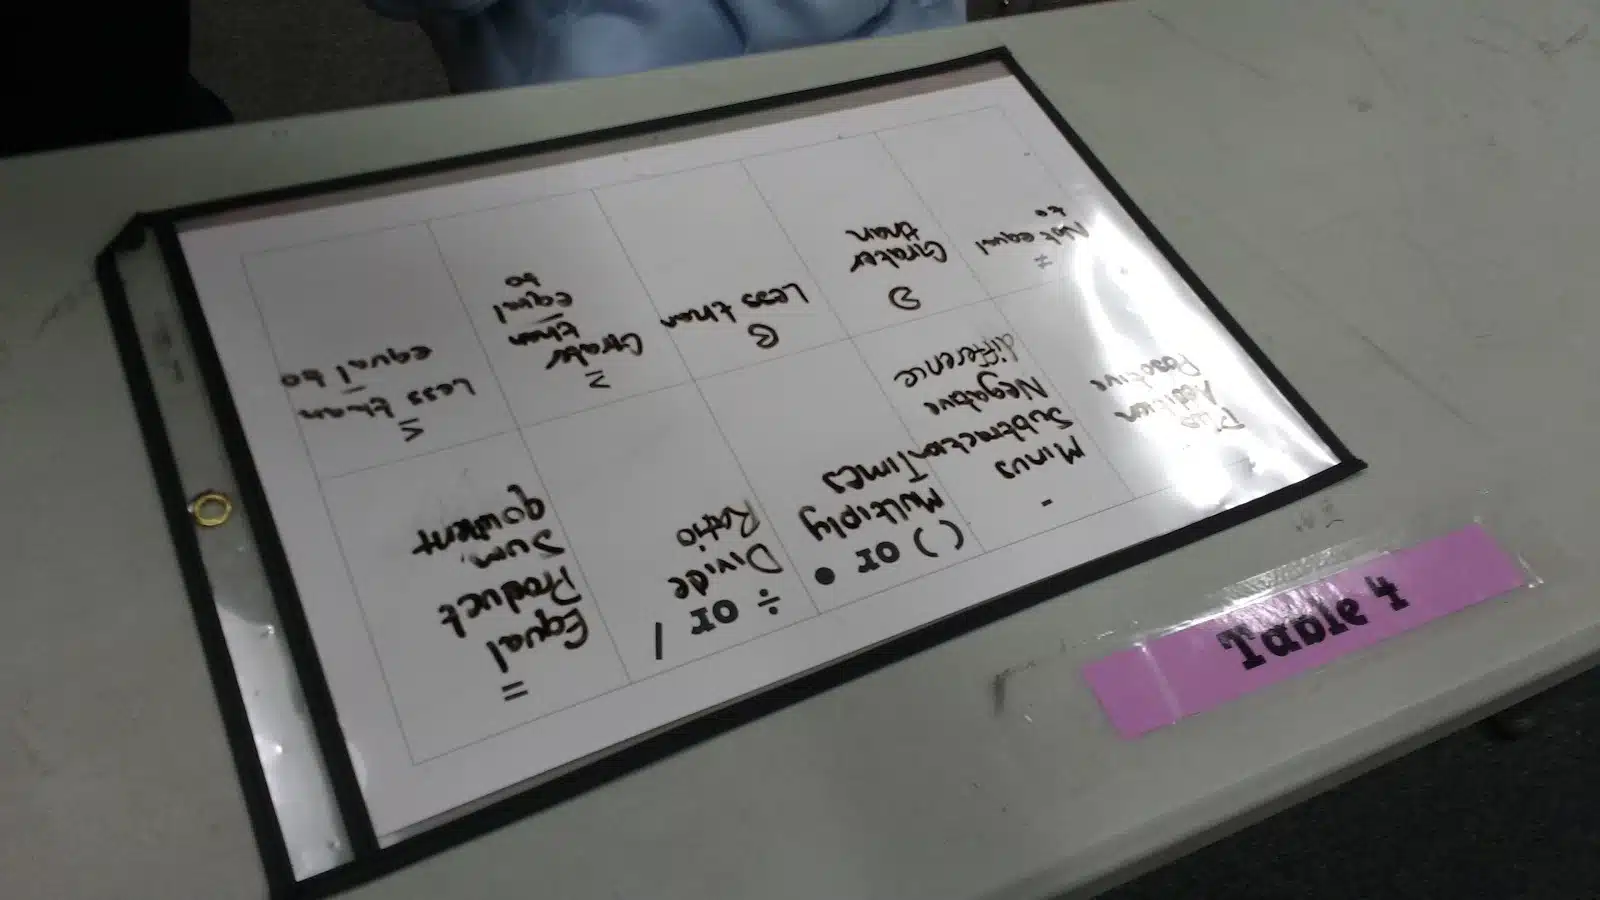 Plus
Addition
-
Minus
Subtraction
Negative
difference
() or •
Multiply
Times
÷ or /
Divide
Ratio
=
Equal
Product
Sum,
≠
Not equal
to
Grater
than
Less than
≥
Grater
than
equal
to
≤
Less than
equal to
Table 4